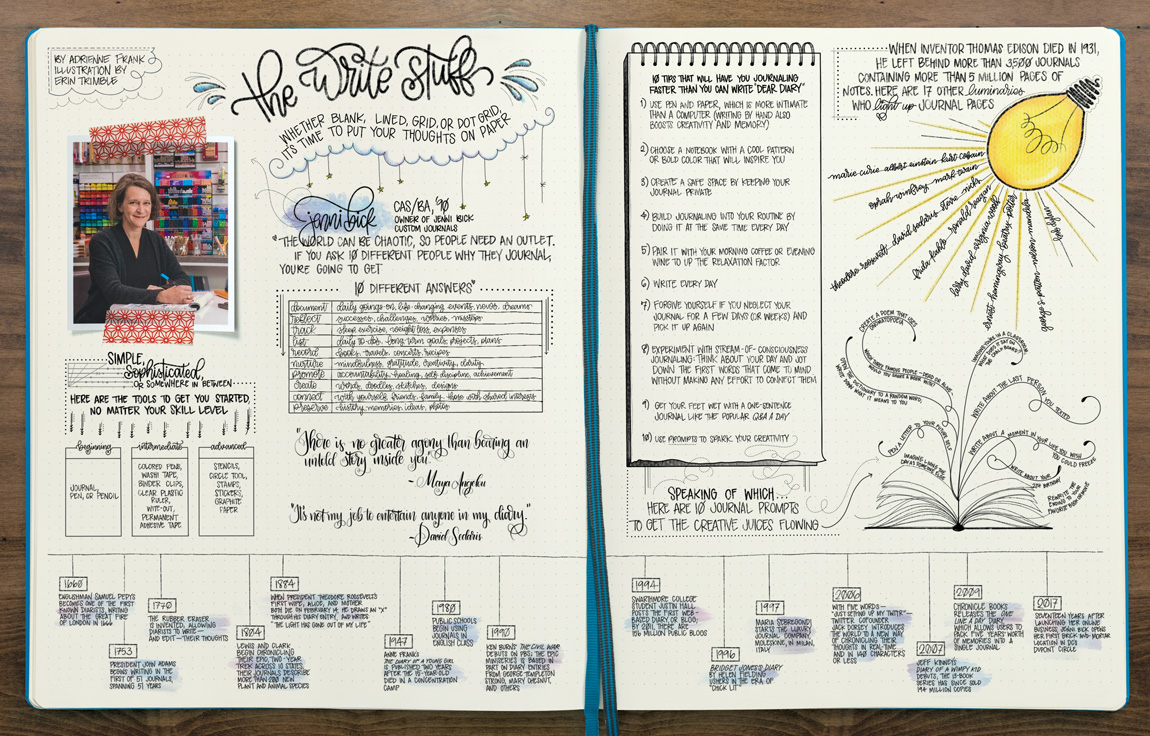 BY ADRIENNE FRANK
ILLUSTRATION BY
ERIN TRIMBLE
the Write Stuff
WHETHER BLANK, LINED, GRID, OR DOT GRID,
IT'S TIME TO PUT YOUR THOUGHTS ON PAPER
jenni bick
CAS/BA, '90
OWNER OF JENNI BICK
CUSTOM JOURNALS
"THE WORLD CAN BE CHAOTIC, SO PEOPLE NEED AN OUTLET.
IF YOU ASK 10 DIFFERENT PEOPLE WHY THEY JOURNAL,
YOU'RE GOING TO GET
10 DIFFERENT ANSWERS"
document daily goings on, life-changing events, novos, dreams
reflect successes, challenges, worries, missteps
track sleep, exercise, weight loss, expenses
list daily to-dos, long-term goals, projects, plans
record books, travels, concerts, recipes
nurture mindfulness, gratitude, creativity, clarity
promote accountability, healing, self discipline, achievement
create words, doodles, sketches, designs
connect with yourself, friends, family, those with shared interests
preserve history, memories, ideas, photos
SIMPLE,
Sophisticated,
OR SOMEWHERE IN BETWEEN
HERE ARE THE TOOLS TO GET YOU STARTED,
NO MATTER YOUR SKILL LEVEL
beginning
JOURNAL,
PEN, OR PENCIL
intermediate
COLORED PENS,
WASHI TAPE,
BINDER CLIPS,
CLEAR PLASTIC
RULER,
WITE-OUT,
PERMANENT
ADHESIVE TAPE
advanced
STENCILS,
CIRCLE TOOL,
STAMPS,
STICKERS,
GRAPHITE
PAPER
"There is no greater agony than bearing an
untold story inside you."
~Maya Angelou
"It's not my job to entertain anyone in my diary."
~David Sedaris
10 TIPS THAT WILL HAVE YOU JOURNALING
FASTER THAN YOU CAN WRITE "DEAR DIARY"
1) USE PEN AND PAPER, WHICH IS MORE INTIMATE
THAN A COMPUTER (WRITING BY HAND ALSO
BOOSTS CREATIVITY AND MEMORY)
2) CHOOSE A NOTEBOOK WITH A COOL PATTERN
OR BOLD COLOR THAT WILL INSPIRE YOU
3) CREATE A SAFE SPACE BY KEEPING YOUR
JOURNAL PRIVATE
4) BUILD JOURNALING INTO YOUR ROUTINE BY
DOING IT AT THE SAME TIME EVERY DAY
5) PAIR IT WITH YOUR MORNING COFFEE OR EVENING
WINE TO UP THE RELAXATION FACTOR
6) WRITE EVERY DAY
7) FORGIVE YOURSELF IF YOU NEGLECT YOUR
JOURNAL FOR A FEW DAYS (OR WEEKS) AND
PICK IT UP AGAIN
8) EXPERIMENT WITH STREAM-OF-CONSCIOUSNESS
JOURNALING: THINK ABOUT YOUR DAY AND JOT
DOWN THE FIRST WORDS THAT COME TO MIND
WITHOUT MAKING ANY EFFORT TO CONNECT THEM
9) GET YOUR FEET WET WITH A ONE-SENTENCE
JOURNAL LIKE THE POPULAR Q&A A DAY
10) USE PROMPTS TO SPARK YOUR CREATIVITY
SPEAKING OF WHICH...
HERE ARE 10 JOURNAL PROMPTS
TO GET THE CREATIVE JUICES FLOWING
WHEN INVENTOR THOMAS EDISON DIED IN 1931,
HE LEFT BEHIND MORE THAN 3,500 JOURNALS
CONTAINING MORE THAN 5 MILLION PAGES OF
NOTES. HERE ARE 17 OTHER luminaries
WHO light up JOURNAL PAGES
marie curie albert einstein kurt cobain
oprah winfrey mark twain
theodore roosevelt david sedaris stevie nicks
frida kahlo ronald reagan
larry david virginia woolf
ernest hemingway beatrix potter
nelson mandela
george s. patton
bob dylan
CREATE A POEM THAT USES
ONOMATOPOEIA
WHICH FAMOUS PEOPLE—DEAD OR ALIVE—
WOULD YOU SHARE A BOOK WITH?
WRITE ABOUT THE LAST PERSON YOU TEXTED
PEN A LETTER TO YOUR FUTURE SELF
WRITE ABOUT A MOMENT IN YOUR LIFE YOU WISH
YOU COULD FREEZE
WRITE ABOUT YOUR
BIRTHDAY
REWRITE THE
ENDING TO YOUR
FAVORITE BOOK OR MOVIE
1660
ENGLISHMAN SAMUEL PEPYS
BECOMES ONE OF THE FIRST
KNOWN DIARISTS, WRITING
ABOUT THE GREAT FIRE
OF LONDON IN 1666
1753
PRESIDENT JOHN ADAMS
BEGINS WRITING IN THE
FIRST OF 51 JOURNALS,
SPANNING 51 YEARS
1770
THE RUBBER ERASER
IS INVENTED, ALLOWING
DIARISTS TO WRITE—
AND EDIT—THEIR THOUGHTS
1804
LEWIS AND CLARK
BEGIN CHRONICLING
THEIR EPIC, TWO-YEAR
TREK ACROSS 16 STATES.
THEIR JOURNALS DESCRIBE
MORE THAN 300 NEW
PLANT AND ANIMAL SPECIES
1884
WHEN PRESIDENT THEODORE ROOSEVELT'S
FIRST WIFE, ALICE, AND MOTHER
BOTH DIE ON FEBRUARY 14, HE DRAWS AN "X"
THROUGH HIS DIARY ENTRY, AND WRITES
"THE LIGHT HAS GONE OUT OF MY LIFE"
1947
ANNE FRANK'S
THE DIARY OF A YOUNG GIRL
IS PUBLISHED TWO YEARS
AFTER THE 15-YEAR-OLD
DIED IN A CONCENTRATION
CAMP
1980
PUBLIC SCHOOLS
BEGIN USING
JOURNALS IN
ENGLISH CLASS
1990
KEN BURNS' THE CIVIL WAR
DEBUTS ON PBS. THE EPIC
MINISERIES IS BASED IN
PART ON DIARY ENTRIES
FROM GEORGE TEMPLETON
STRONG, MARY CHESNUT,
AND OTHERS
1994
SWARTHMORE COLLEGE
STUDENT JUSTIN HALL
POSTS THE FIRST WEB-
BASED DIARY, OR BLOG;
BY 2011, THERE ARE
156 MILLION PUBLIC BLOGS
1996
BRIDGET JONES'S DIARY
BY HELEN FIELDING
USHERS IN THE ERA OF
"CHICK LIT"
1997
MARIA SEBREGONDI
STARTS THE LUXURY
JOURNAL COMPANY,
MOLESKINE, IN MILAN,
ITALY
2006
WITH FIVE WORDS—
"JUST SETTING UP MY TWTTR"—
TWITTER COFOUNDER
JACK DORSEY INTRODUCES
THE WORLD TO A NEW WAY
OF CHRONICLING THEIR
THOUGHTS IN REAL-TIME
AND IN 140 CHARACTERS
OR LESS
2007
JEFF KINNEY'S
DIARY OF A WIMPY KID
DEBUTS, THE 13-BOOK
SERIES HAS SINCE SOLD
194 MILLION COPIES
2009
CHRONICLE BOOKS
RELEASES THE ONE
LINE A DAY DIARY,
WHICH ALLOWS USERS TO
PACK FIVE YEARS WORTH
OF MEMORIES INTO A
SINGLE JOURNAL
2017
SEVENTEEN YEARS AFTER
LAUNCHING HER ONLINE
BUSINESS, JENNI BICK OPENS
HER FIRST BRICK-AND-MORTAR
LOCATION IN DC'S
DUPONT CIRCLE